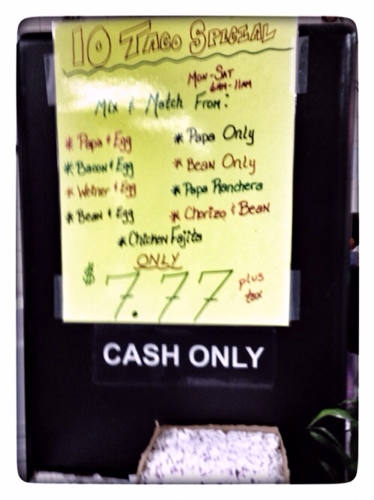 10 TACO SPECIAL
MON-SAT
6AM-11AM
Mix & Match From:
* Papa & Egg
* Papa Only
* Bacon & Egg
* Bean Only
* Weiner & Egg
* Papa Ranchera
* Bean & Egg
* Chorizo & Bean
* Chicken Fajita
ONLY
$7.77 plus tax
CASH ONLY